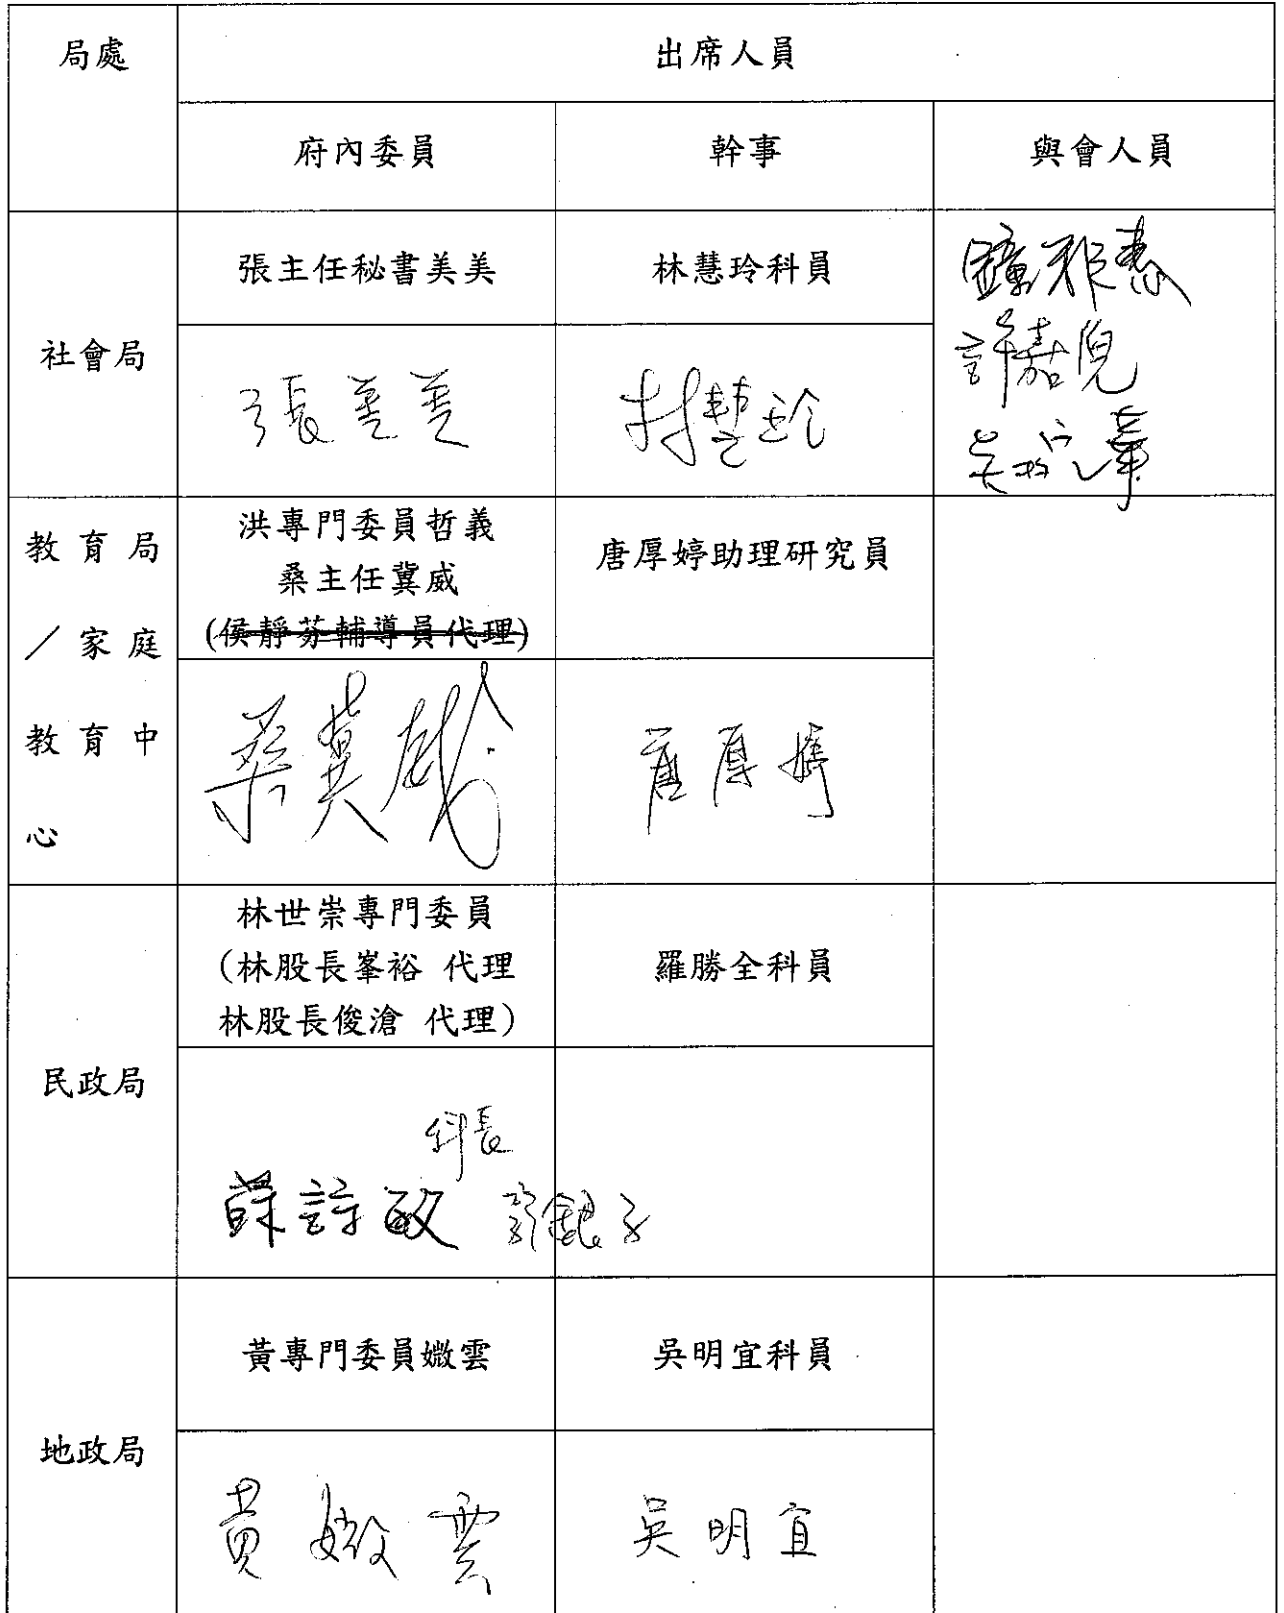 局處
出席人員
府內委員
幹事
與會人員
社會局
張主任秘書美美
林慧玲科員
鐘雅惠
許嘉倪
張美美
林慧玲
教育局
／家庭
教育中
心
洪專門委員哲義
桑主任冀威
(侯靜芬輔導員代理)
唐厚婷助理研究員
桑冀威
唐厚婷
民政局
林世崇專門委員
(林股長峯裕 代理
林股長俊滄 代理)
羅勝全科員
科長
蘇詩敏 彭銀子
地政局
黃專門委員媺雲
吳明宜科員
黃媺雲
吳明宜